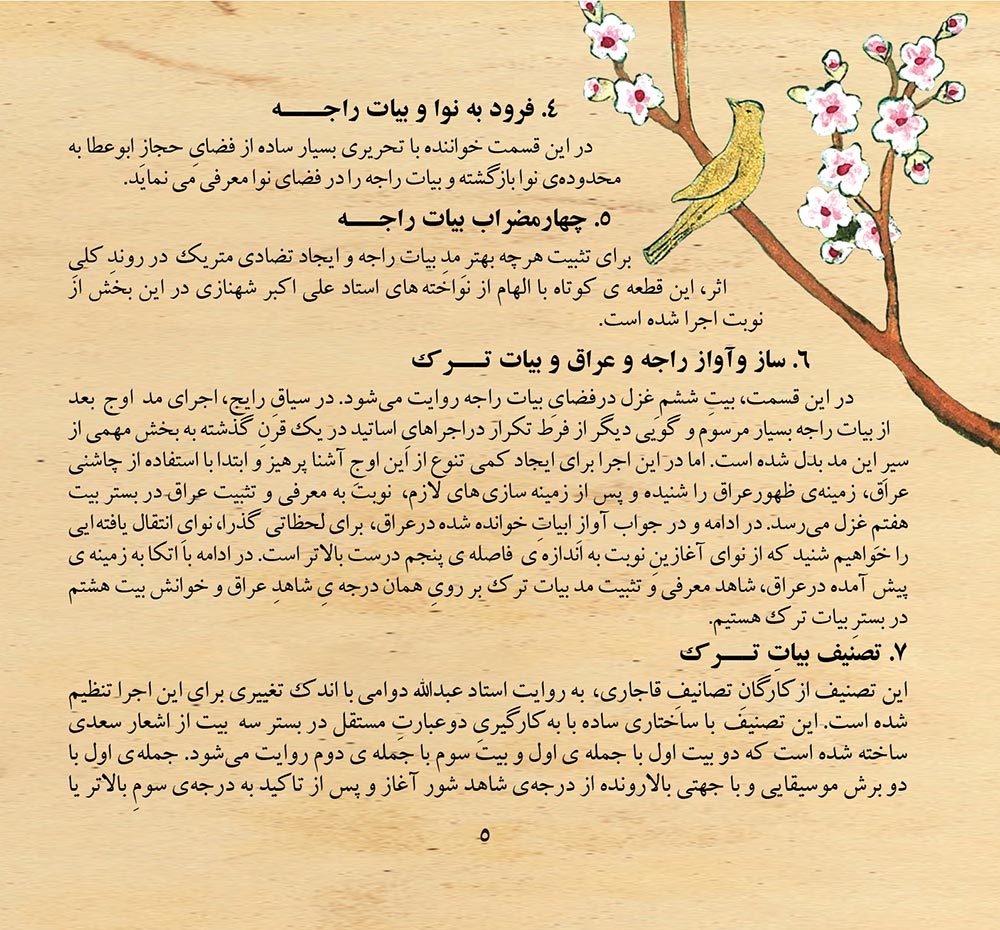 ٤. فرود به نوا و بیات راجـــــه
در این قسمت خواننده با تحریری بسیار ساده از فضایِ حجازِ ابوعطا به
محدوده‌ی نوا بازگشته و بیات راجه را در فضای نوا معرفی می نماید.
٥. چهارمضراب بیات راجـــــه
برای تثبیت هرچه بهتر مدِ بیات راجه و ایجاد تضادی متریک در روندِ کلیِ
اثر، این قطعه ی کوتاه با الهام از نواخته های استاد علی اکبر شهنازی در این بخش از
نوبت اجرا شده است.
٦. ساز وآواز راجه و عراق و بیات تـــرک
در این قسمت، بیتِ ششمِ غزل درفضای بیات راجه روایت می‌شود. در سیاقِ رایج، اجرای مد اوج بعد
از بیات راجه بسیار مرسوم و گویی دیگر از فرَط تکرار دراجراهایِ اساتید در یک قرنِ گذشته به بخش مهمی از
سیر این مد بدل شده است. اما در این اجرا برای ایجاد کمی تنوع از این اوجِ آشنا پرهیز و ابتدا با استفاده از چاشنی
عراق، زمینه‌ی ظهورعراق را شنیده و پس از زمینه سازی‌های لازم، نوبت به معرفی و تثبیت عراق در بستر بیت
هفتم غزل می‌رسد. در ادامه و در جواب آواز ابیاتِ خوانده شده درعراق، برای لحظاتی گذرا، نوای انتقال یافته‌ایی
را خواهیم شنید که از نوای آغازینِ نوبت به اندازه ی فاصله ی پنجم درست بالاتر است. در ادامه با اتکا به زمینه ی
پیش آمده درعراق، شاهد معرفی و تثبیت مد بیات ترک بر رویِ همان درجه یِ شاهدِ عراق و خوانش بیت هشتم
در بسترِ بیات ترک هستیم.
٧. تصنیف بیات تـــرک
این تصنیف از کارگان تصانیفِ قاجاری، به روایت استاد عبدالله دوامی با اندک تغییری برای این اجرا تنظیم
شده است. این تصنیف با ساختاری ساده با به کارگیریِ دوعبارتِ مستقل در بستر سه بیت از اشعار سعدی
ساخته شده است که دو بیت اول با جمله ی اول و بیت سوم با جمله ی دوم روایت می‌شود. جمله‌ی اول با
دو برش موسیقایی و با جهتی بالارونده از درجه‌ی شاهد شور آغاز و پس از تاکید به درجه‌ی سومِ بالاتر یا
٥